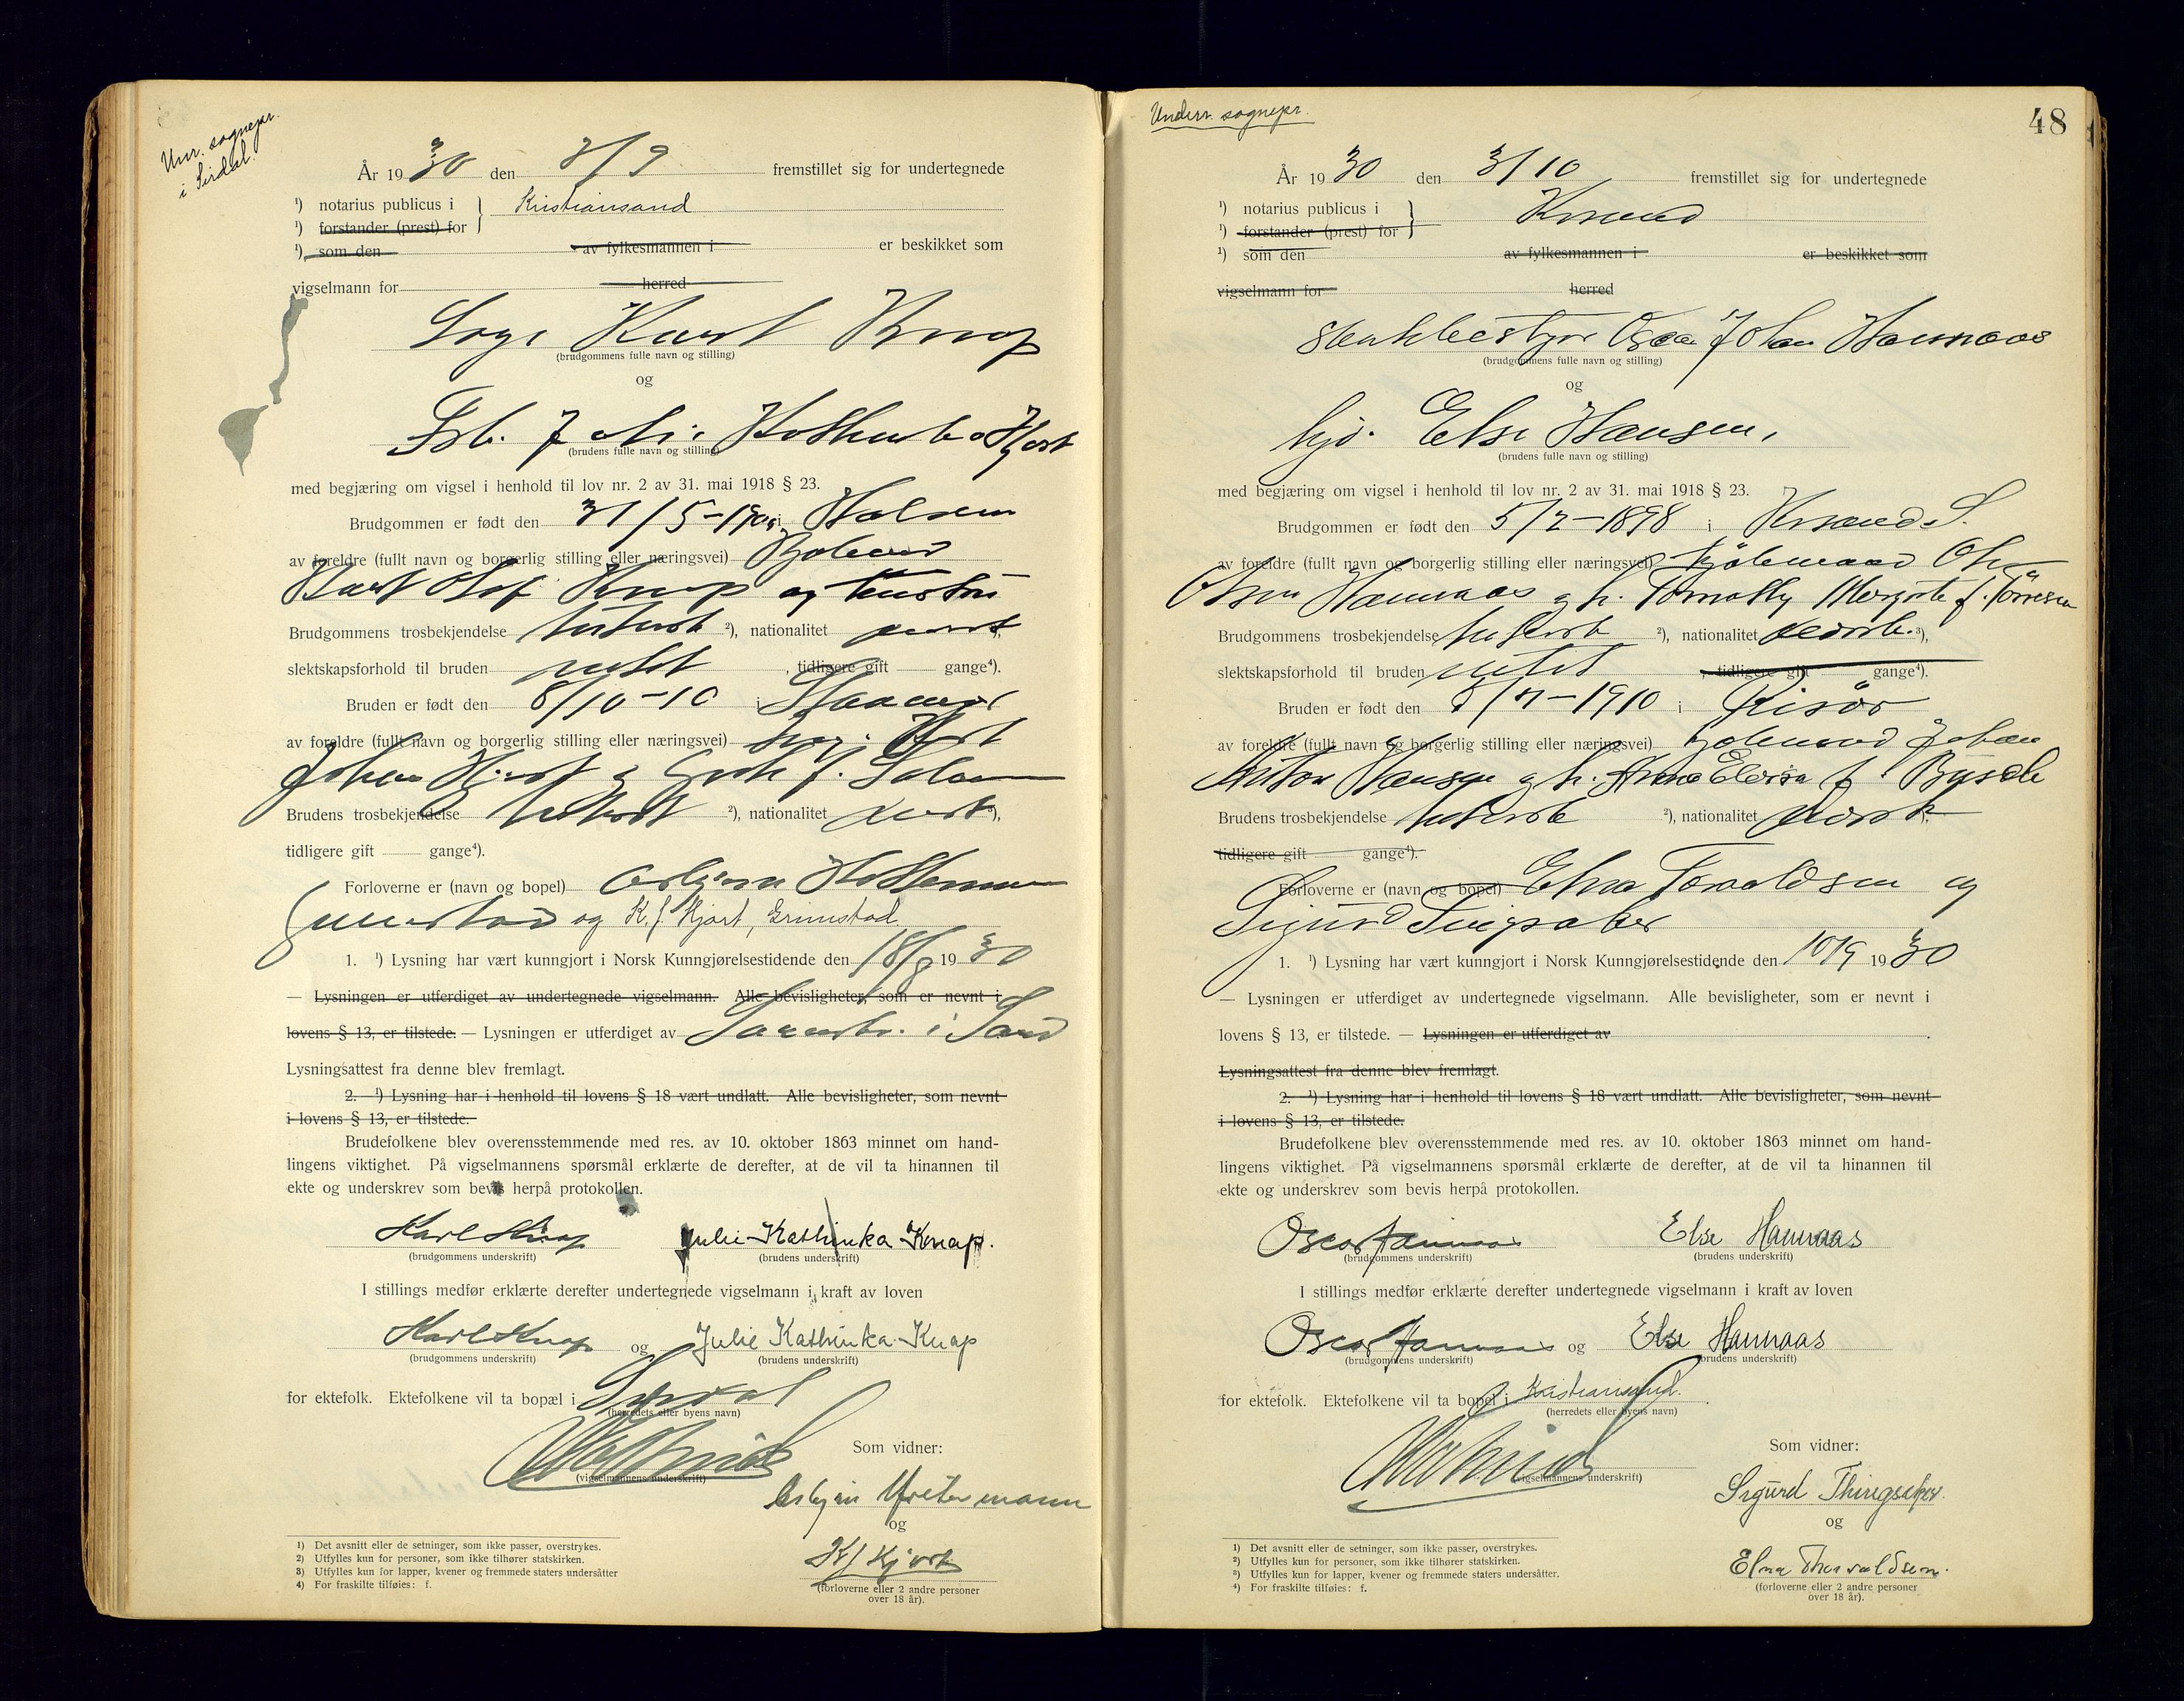 Unr. sognepr.
i Sirdal.
År 1930 den 3/9 fremstillet sig for undertegnede
¹) notarius publicus i } Kristiansand
¹) forstander (prest) for
¹) som den av fylkesmannen i er beskikket som
vigselmann for herred
Karl Knap
(brudgommens fulle navn og stilling)
og
Hjort
(brudens fulle navn og stilling)
med begjæring om vigsel i henhold til lov nr. 2 av 31. mai 1918 § 23.
Brudgommen er født den 31/5-190 i
av foreldre (fullt navn og borgerlig stilling eller næringsvei)
Knap og
Brudgommens trosbekjendelse luthersk ²), nationalitet norsk
slektskapsforhold til bruden intet , tidligere gift gange⁴).
Bruden er født den 8/10-10 i
av foreldre (fullt navn og borgerlig stilling eller næringsvei) Hjort
Johan Hjort og f.
Brudens trosbekjendelse luthersk ²), nationalitet norsk ³),
tidligere gift gange⁴).
Forloverne er (navn og bopel) Asbjørn
Grimstad og K. J. Hjort, Grimstad.
1. ¹) Lysning har vært kunngjort i Norsk Kunngjørelsestidende den 18/8 1930
— Lysningen er utferdiget av undertegnede vigselmann. Alle bevisligheter, som er nevnt i
lovens § 13, er tilstede. — Lysningen er utferdiget av i Sand
Lysningsattest fra denne blev fremlagt.
2. ¹) Lysning har i henhold til lovens § 18 vært undlatt. Alle bevisligheter, som nevnt
i lovens § 13, er tilstede.
Brudefolkene blev overensstemmende med res. av 10. oktober 1863 minnet om hand-
lingens viktighet. På vigselmannens spørsmål erklærte de derefter, at de vil ta hinannen til
ekte og underskrev som bevis herpå protokollen.
Karl Knap Julie Kathinka Knap.
(brudgommens underskrift) (brudens underskrift)
I stillings medfør erklærte derefter undertegnede vigselmann i kraft av loven
Karl Knap og Julie Kathinka Knap
(brudgommens underskrift) (brudens underskrift)
for ektefolk. Ektefolkene vil ta bopæl i Sirdal
(herredets eller byens navn)
Som vidner:
(vigselmannens underskrift)
Asbjørn
og
K J Hjort
(forloverne eller 2 andre personer
over 18 år).
1) Det avsnitt eller de setninger, som ikke passer, overstrykes.
2) Utfylles kun for personer, som ikke tilhører statskirken.
3) Utfylles kun for lapper, kvener og fremmede staters undersåtter
4) For fraskilte tilføies: f.
Underr. sognepr.
48
År 1930 den 3/10 fremstillet sig for undertegnede
¹) notarius publicus i } Krsand
¹) forstander (prest) for
¹) som den av fylkesmannen i er beskikket som
vigselmann for herred
Oscar Johan Hannaas
(brudgommens fulle navn og stilling)
og
Else Hansen,
(brudens fulle navn og stilling)
med begjæring om vigsel i henhold til lov nr. 2 av 31. mai 1918 § 23.
Brudgommen er født den 5/7-1898 i Krsand S.
av foreldre (fullt navn og borgerlig stilling eller næringsvei)
Hannaas og h. f. Tørresen
Brudgommens trosbekjendelse luthersk ²), nationalitet norsk ³),
slektskapsforhold til bruden intet , tidligere gift gange⁴).
Bruden er født den /7-1910 i Risör
av foreldre (fullt navn og borgerlig stilling eller næringsvei) Johan
Anton Hansen og h. Anna f.
Brudens trosbekjendelse luthersk ²), nationalitet norsk
tidligere gift gange⁴).
Forloverne er (navn og bopel) Elna Toraldsen og
Sigurd
1. ¹) Lysning har vært kunngjort i Norsk Kunngjørelsestidende den 10/9 1930
— Lysningen er utferdiget av undertegnede vigselmann. Alle bevisligheter, som er nevnt i
lovens § 13, er tilstede. — Lysningen er utferdiget av
Lysningsattest fra denne blev fremlagt.
2. ¹) Lysning har i henhold til lovens § 18 vært undlatt. Alle bevisligheter, som nevnt
i lovens § 13, er tilstede.
Brudefolkene blev overensstemmende med res. av 10. oktober 1863 minnet om hand-
lingens viktighet. På vigselmannens spørsmål erklærte de derefter, at de vil ta hinannen til
ekte og underskrev som bevis herpå protokollen.
Oscar Hannaas Else Hannaas
(brudgommens underskrift) (brudens underskrift)
I stillings medfør erklærte derefter undertegnede vigselmann i kraft av loven
Oscar Hannaas og Else Hannaas
(brudgommens underskrift) (brudens underskrift)
for ektefolk. Ektefolkene vil ta bopel i Kristiansand.
(herredets eller byens navn)
Som vidner:
(vigselmannens underskrift)
Sigurd
og
Elna Thorvaldsen.
(forloverne eller 2 andre personer
over 18 år).
1) Det avsnitt eller de setninger, som ikke passer, overstrykes.
2) Utfylles kun for personer, som ikke tilhører statskirken.
3) Utfylles kun for lapper, kvener og fremmede staters undersåtter.
4) For fraskilte tilføies: f.